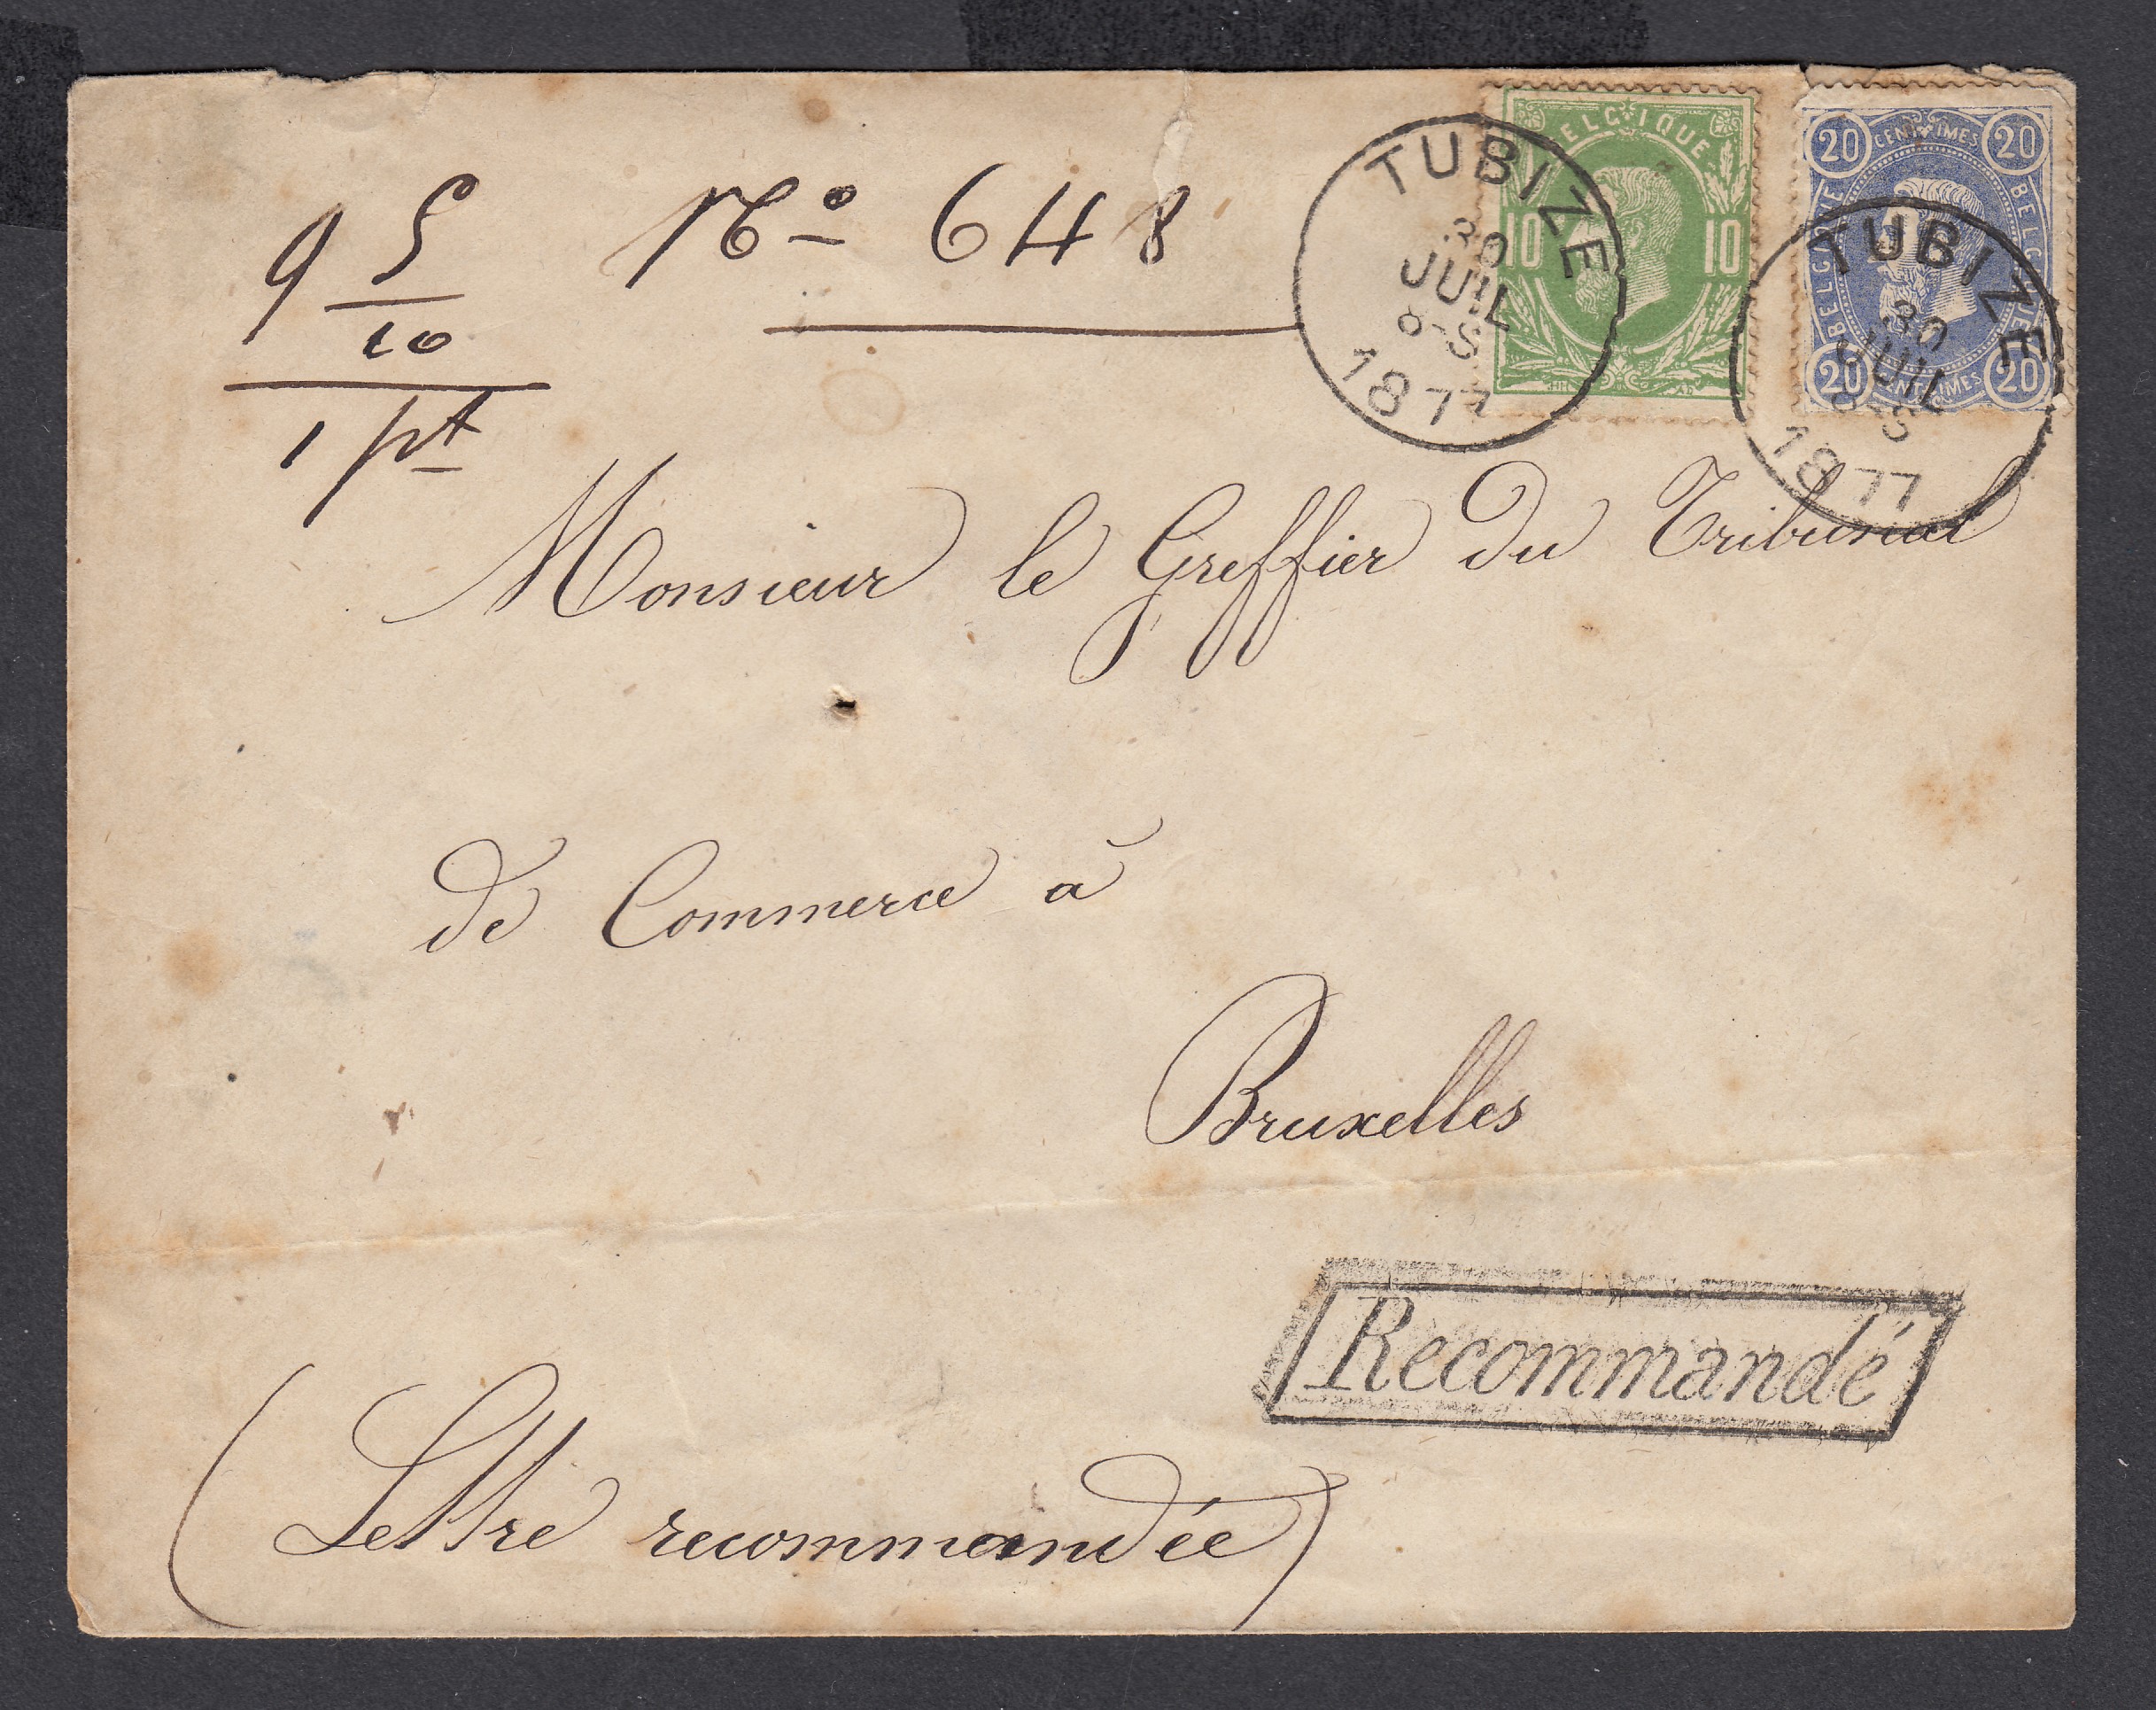 9 5/10
1 pt
N° 648
TUBIZE
30
JUIL
8-S
1877
BELGIQUE
10 10
TUBIZE
30
JUIL
8-S
1877
20 CENTIMES 20
BELGIQUE BELGIQUE
20 CENTIMES 20
Monsieur le Greffier du Tribunal
de Commerce à
Bruxelles
Recommandé
(Lettre recommandée)